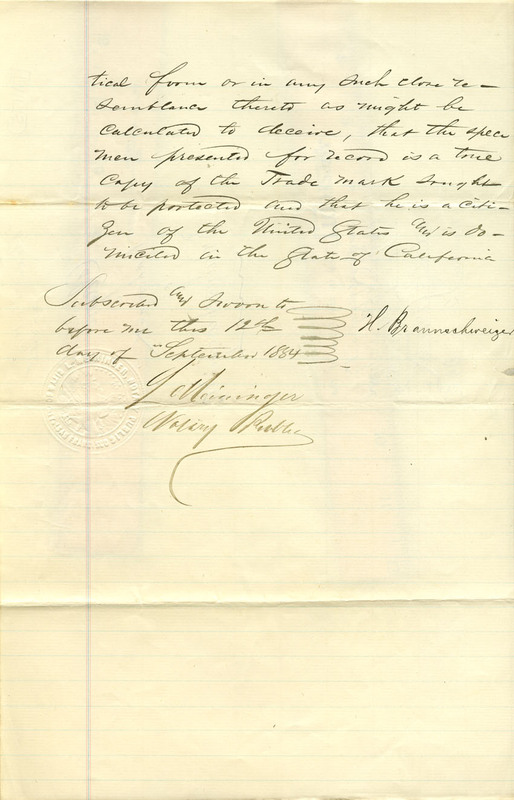 tical form or in any such close re-
semblance thereto as might be
calculated to deceive, that the speci
men presented for record is a true
copy of the Trade Mark sought
to be protected and that he is a citi-
zen of the United States and is do-
miciled in the State of California
Subscribed and sworn to
before me this 12th
day of September 1884
H. Braunschweiger
Notary Public